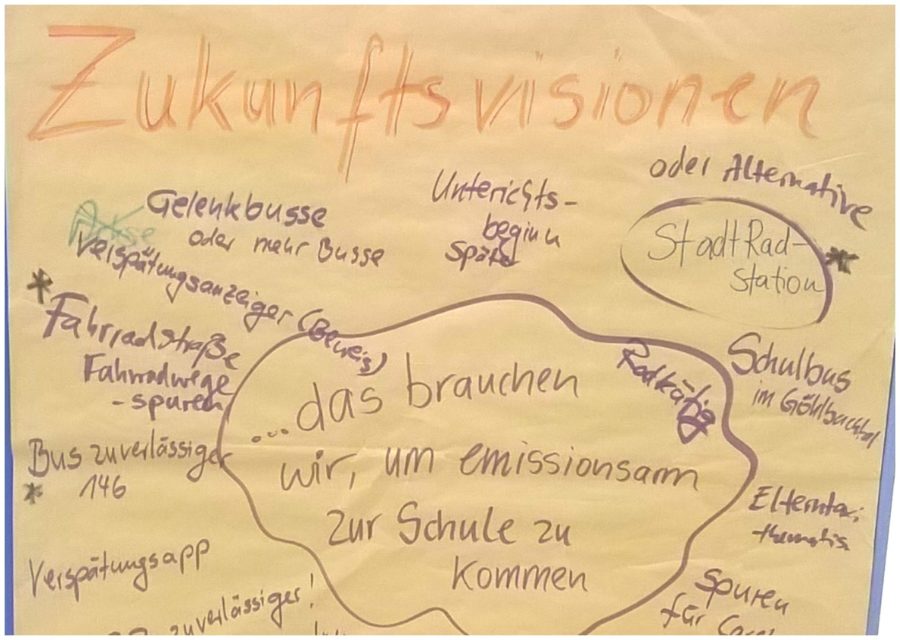 Zukunftsvisionen
Gelenkbusse
oder mehr Busse
Verspätungsanzeiger (Beweis)
Unterichts-
beginn
später
oder Alternative
StadtRad-
station
Fahrradstraße
Fahrradwege
-spuren
Radkäfig
Schulbus
im Göhlbachtal
...das brauchen
wir, um emissionsarm
zur Schule zu
kommen
Bus zuverlässiger
146
Elterntaxi
Verspätungsapp
Spuren
für
zuverlässiger!